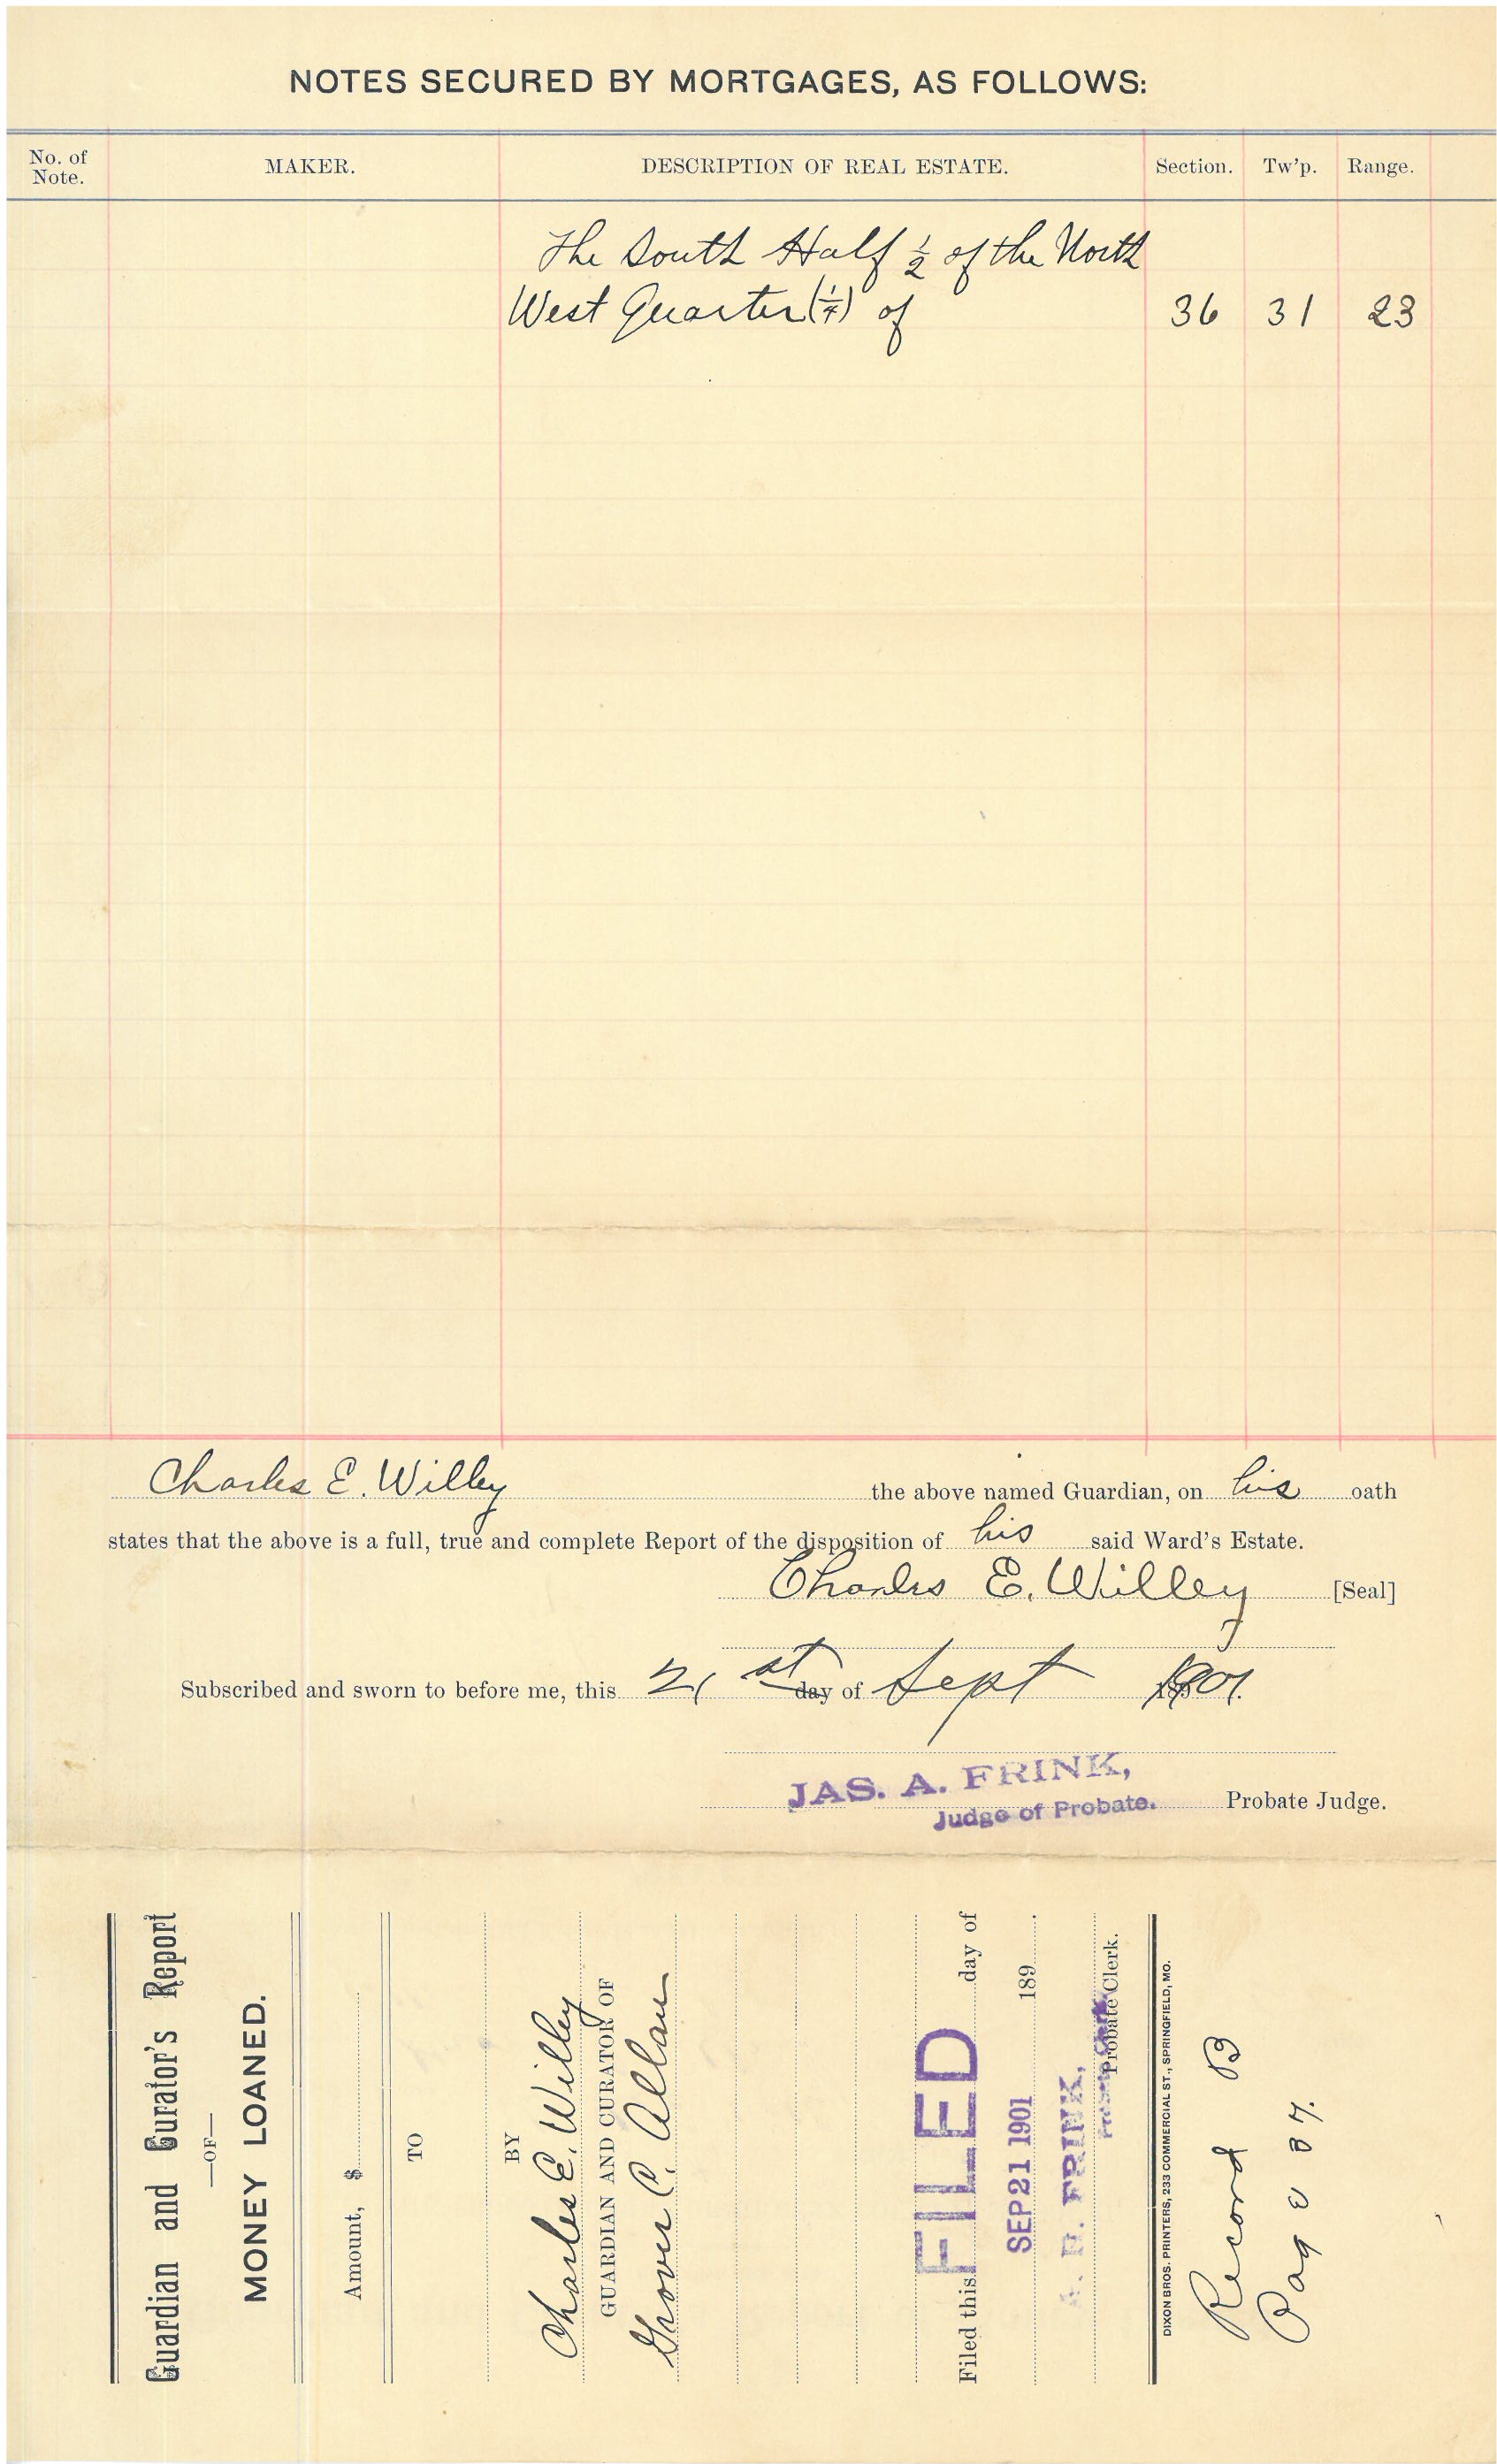 NOTES SECURED BY MORTGAGES, AS FOLLOWS:
No. of Note. MAKER. DESCRIPTION OF REAL ESTATE. Section. Tw'p. Range.
The South Half ½ of the North
West Quarter (¼) of 36 31 23
Charles E. Willey the above named Guardian, on his oath
states that the above is a full, true and complete Report of the disposition of his said Ward's Estate.
Charles E. Willey [Seal]
Subscribed and sworn to before me, this 21st day of Sept 1901.
JAS. A. FRINK,
Judge of Probate. Probate Judge.
Guardian and Curator's Report
—OF—
MONEY LOANED.
Amount, $
TO
BY
Charles E. Willey
GUARDIAN AND CURATOR OF
Grover C. Allan
Filed this FILED day of
SEP 21 1901 189 .
FRINK,
Probate Clerk.
DIXON BROS. PRINTERS, 233 COMMERCIAL ST., SPRINGFIELD, MO.
Record B
Page 37.